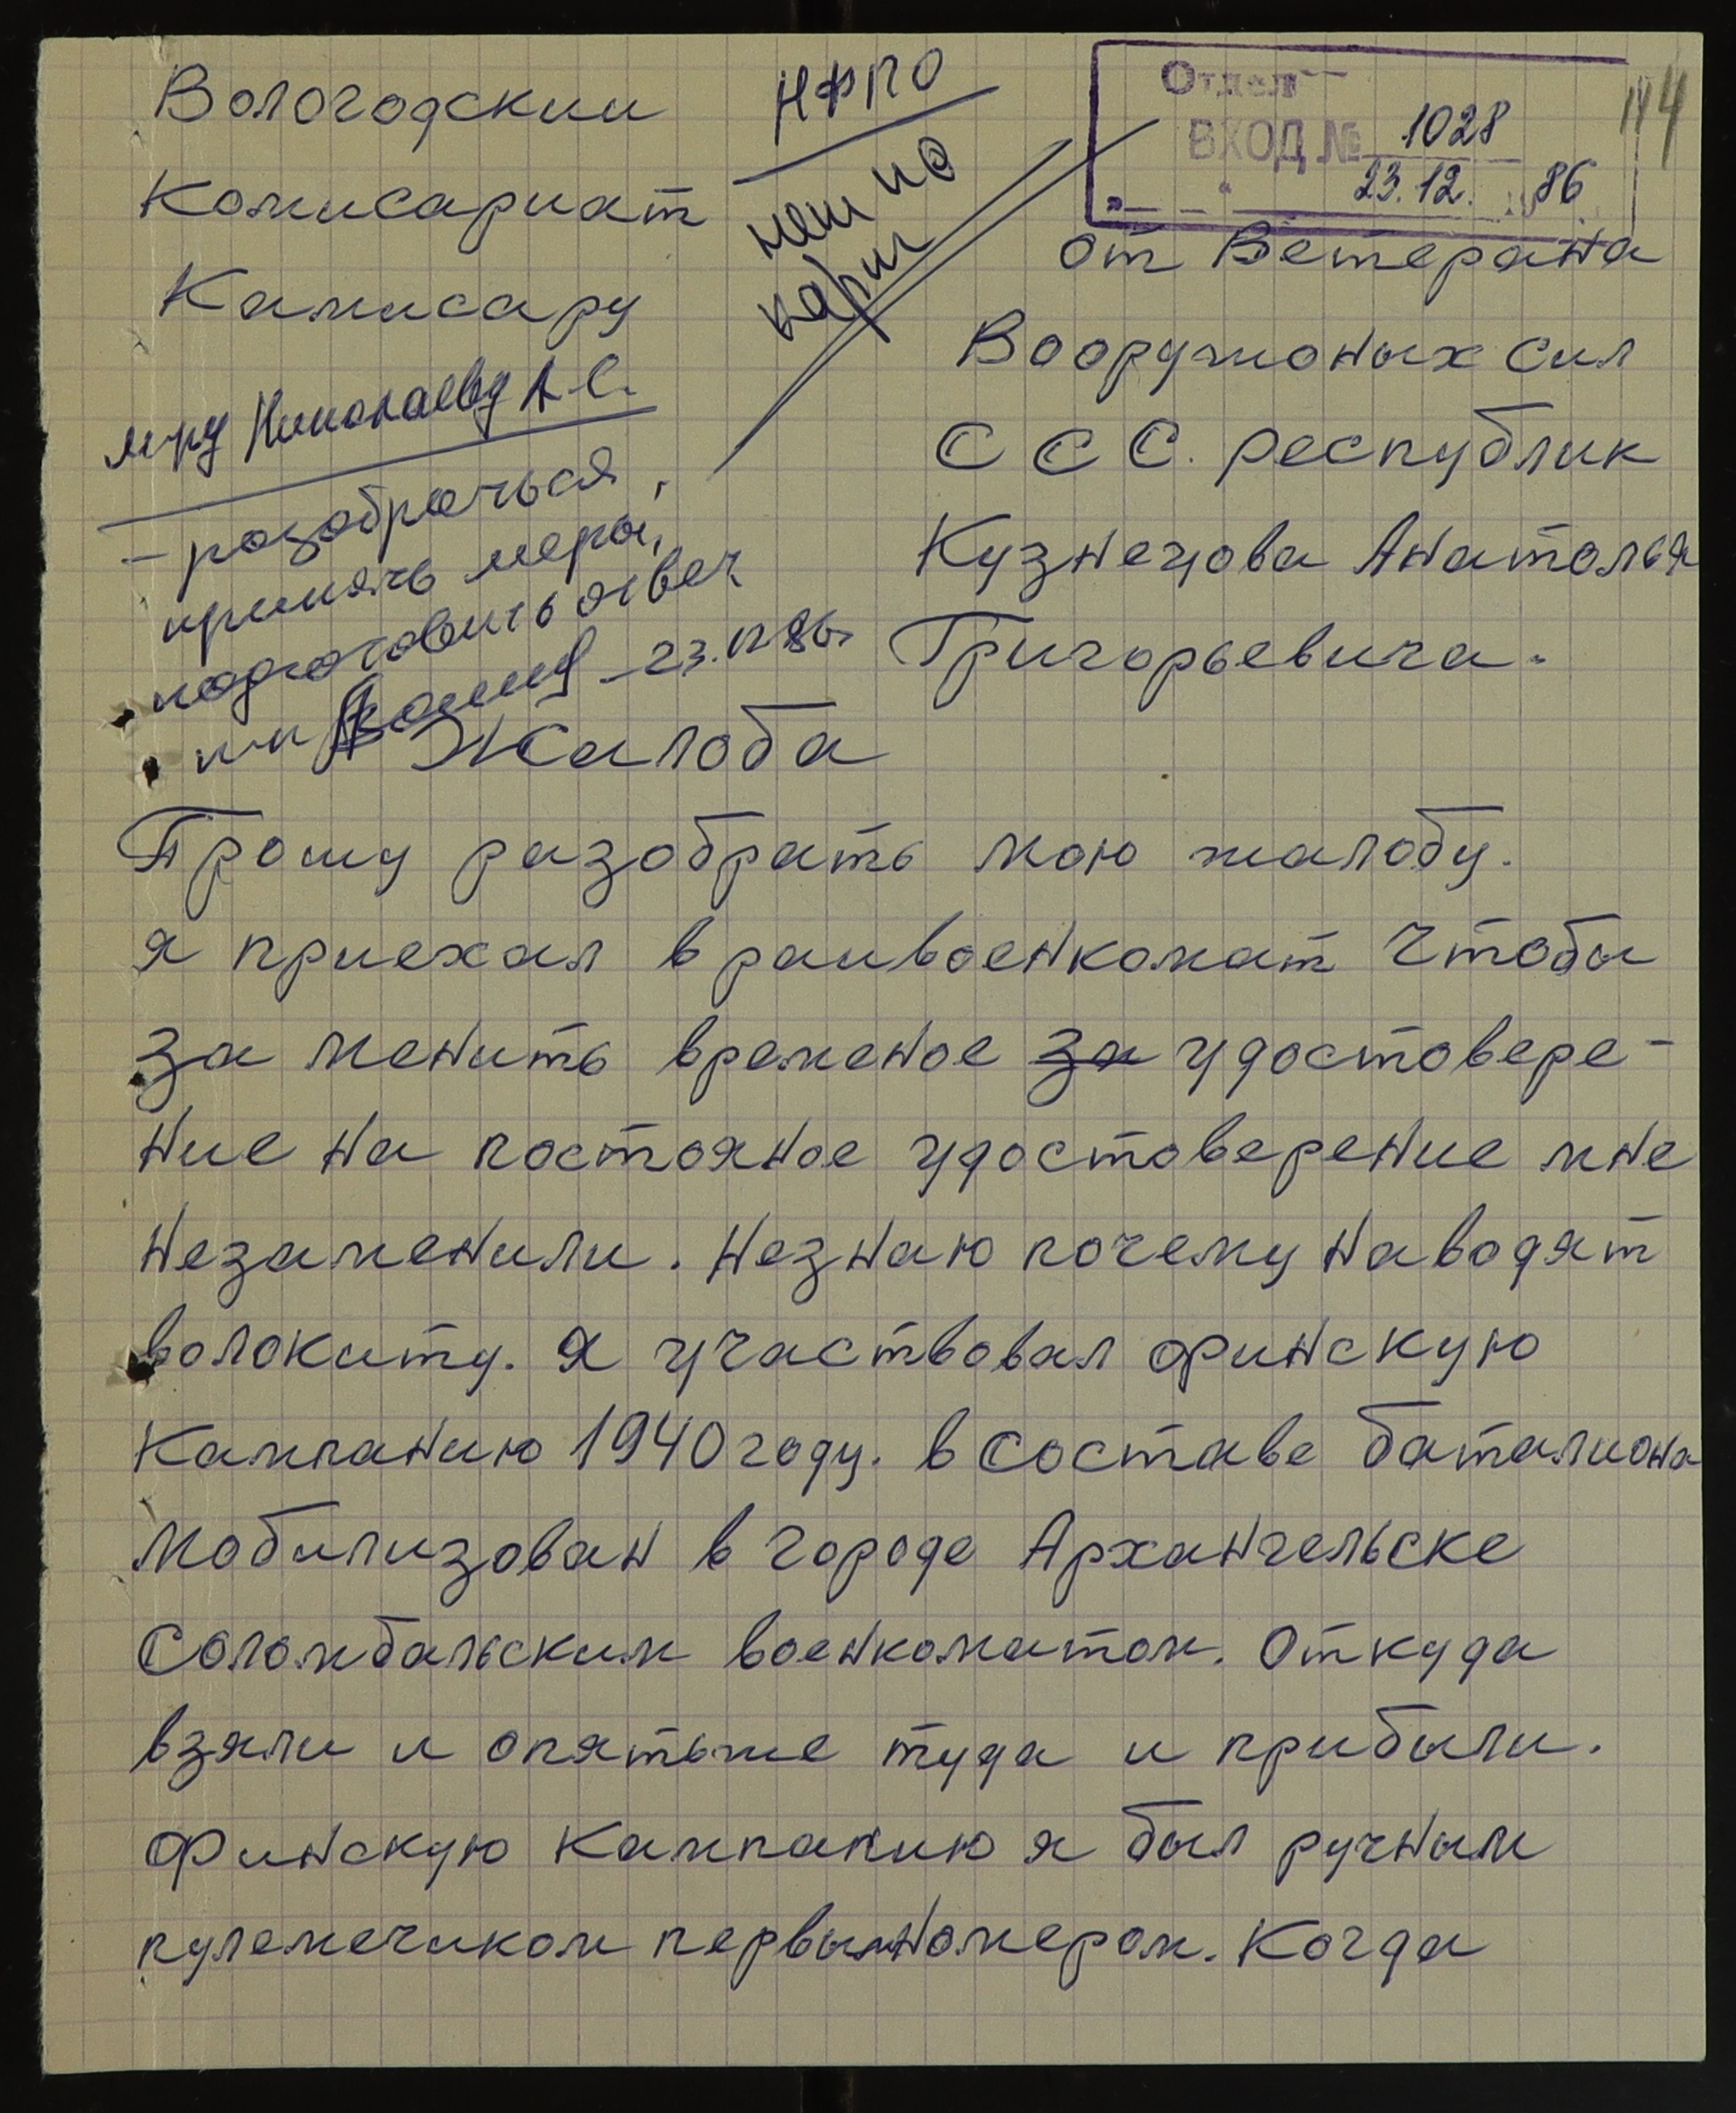 Вологодскии
Комисариат
Камисару
НФПО
нет по
карт
Отдел
ВХОД № 1028
23.12. 86
114
от Ветерана
Вооружоных Сил
С С С. республик
Кузнецова Анатолья
Григорьевича.
м-ру Николаеву А.С.
– разобраться,
принять меры,
подготовить ответ
п-п 23.12.86г
Жалоба
Прошу разобрать мою жалобу.
я приехал в раивоенкомат чтобы
за менить временое за удостовере-
ние на постояное удостоверение мне
незаменили. Незнаю почему наводят
волокиту. Я участвовал финскую
Кампанию 1940 году. в составе баталиона
мобилизован в городе Архангельске
Соломбальским военкоматом. Откуда
взяли и опятьже туда и прибыли.
Финскую Кампанию я был ручным
пулемечиком первымномером. Когда